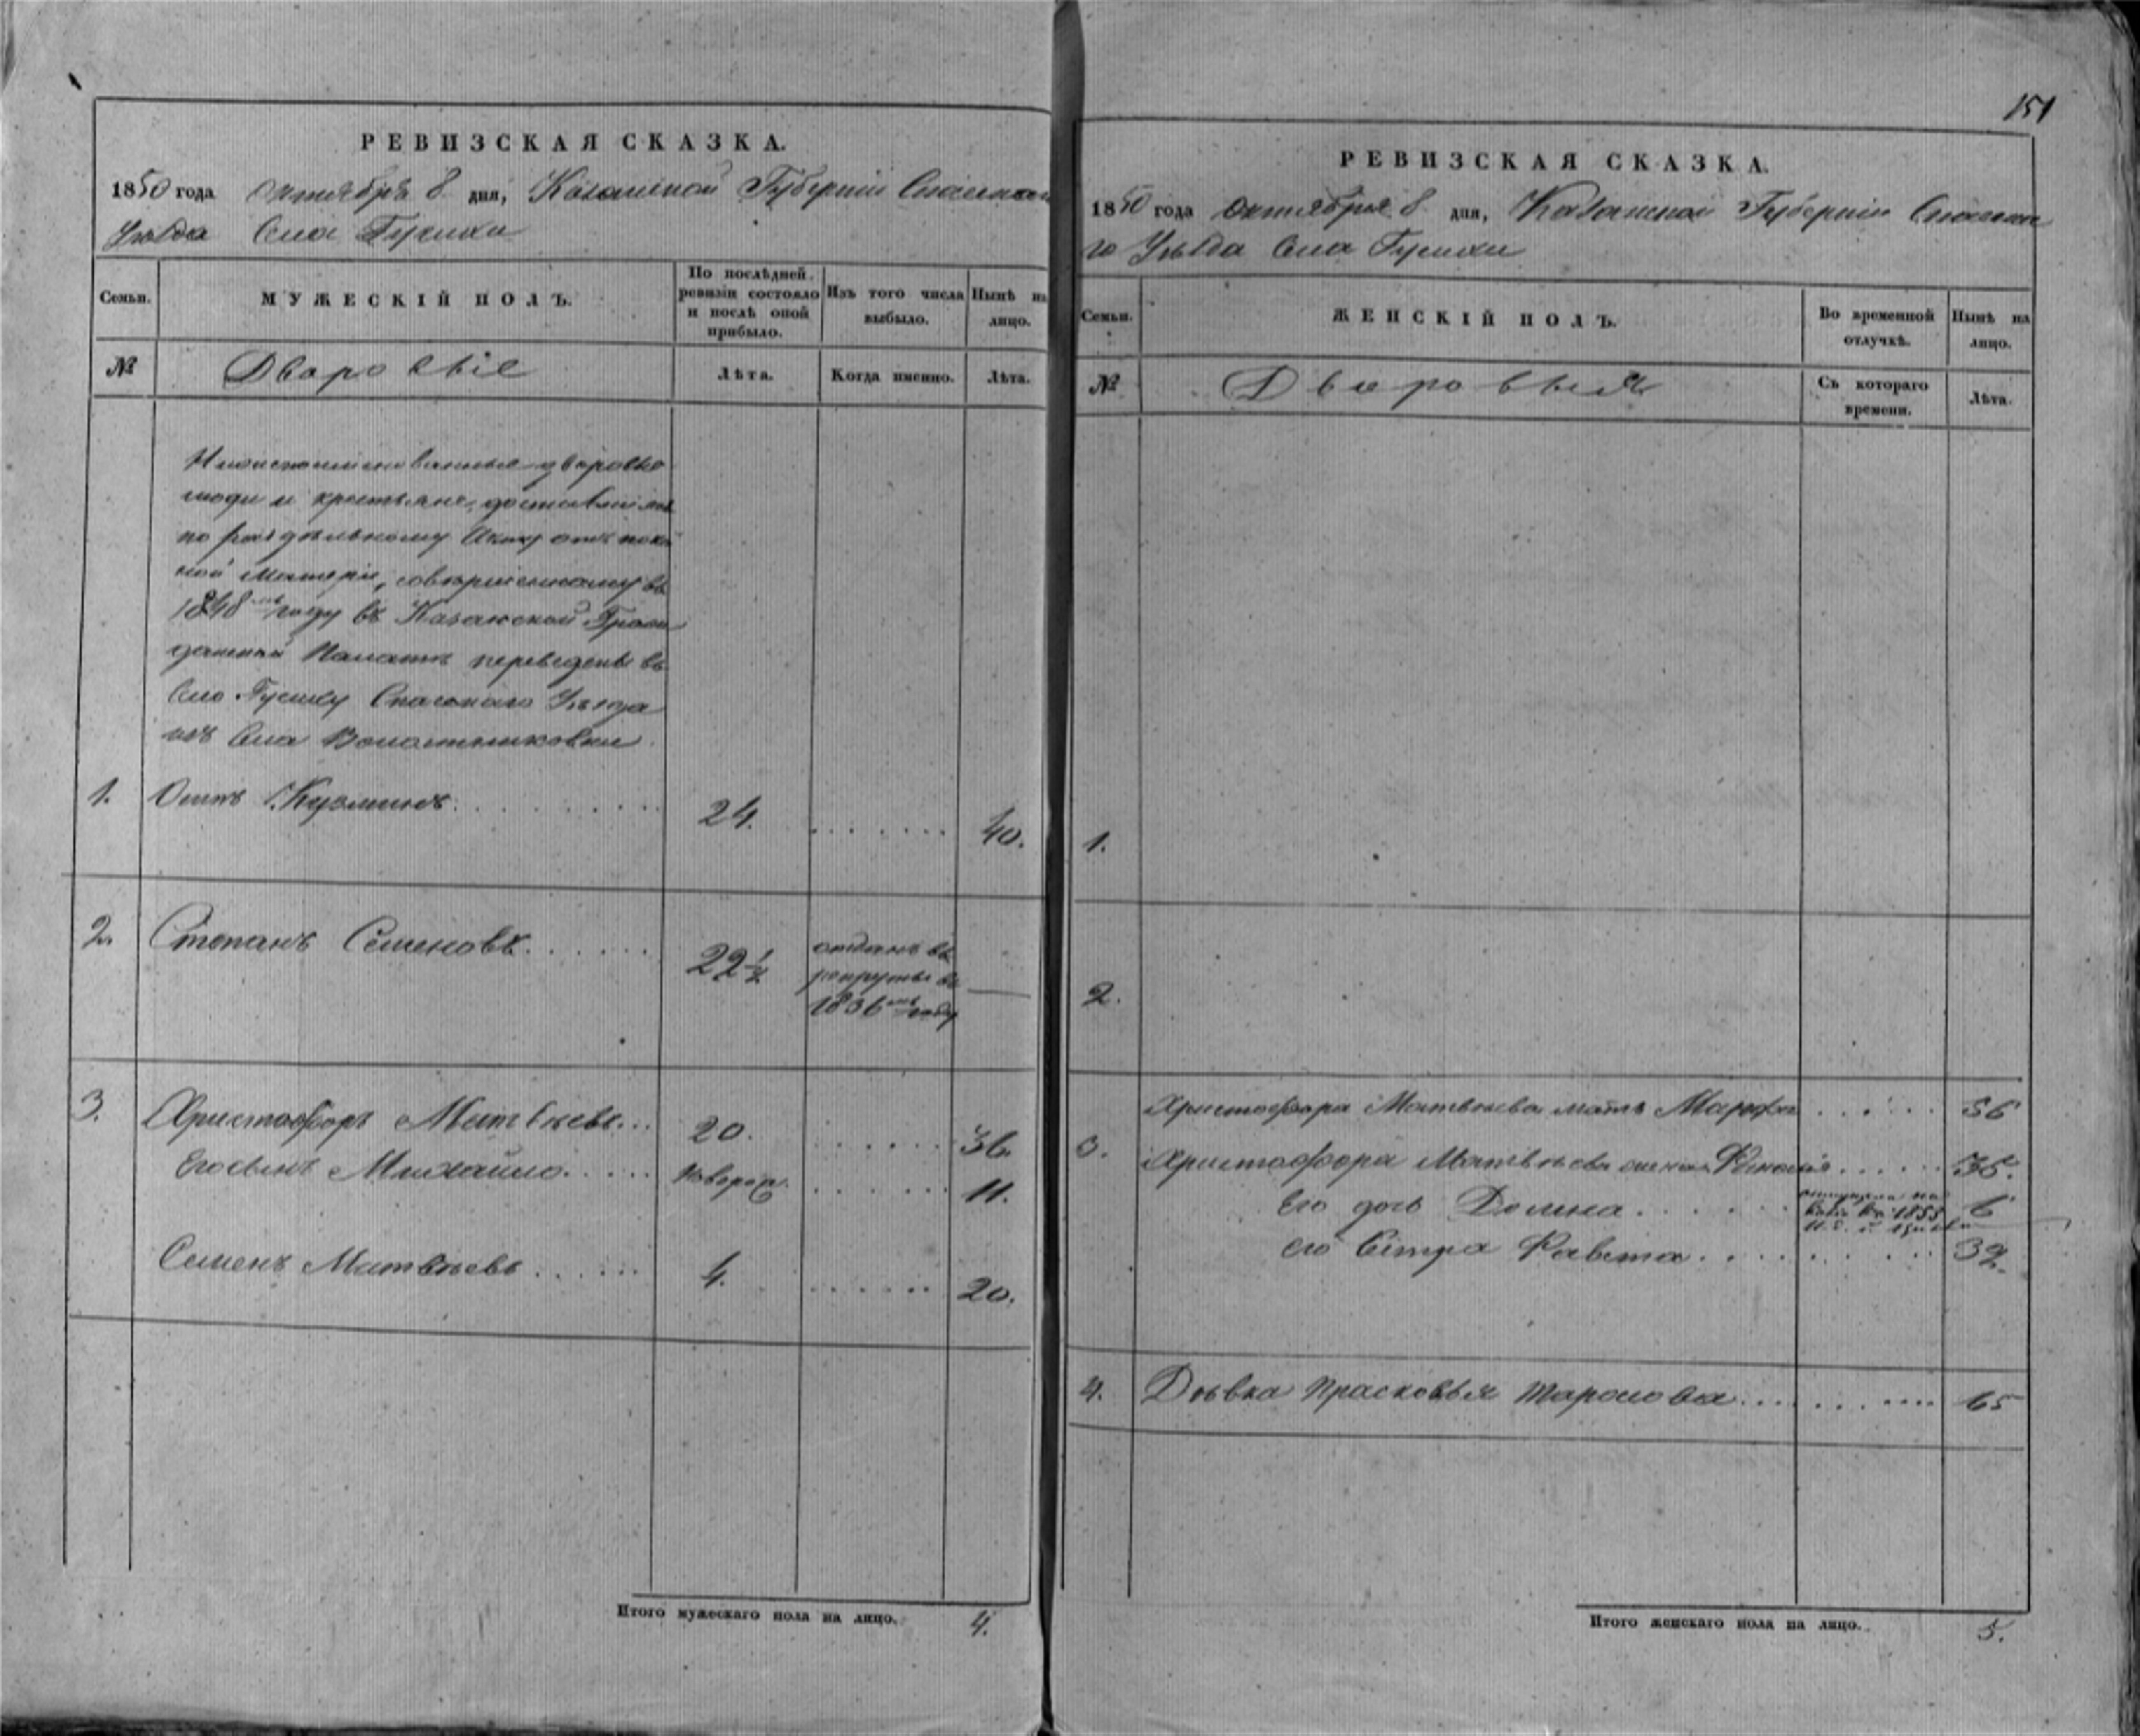 151
РЕВИЗСКАЯ СКАЗКА.
1850 года октября 8 дня, Казанской Губерніи Спасскаго
Уѣзда Села Гусихи
Семьи.
МУЖЕСКІЙ ПОЛЪ.
По послѣдней ревизіи состояло и послѣ оной прибыло.
Изъ того числа выбыло.
Нынѣ на лицо.
№
Дворовые
Лѣта.
Когда именно.
Лѣта.
дворовые
люди и крестьяне, доставшіеся
по раздѣльному Акту отъ покой
ной матери, совершенному въ
1848мъ году въ Казанской Граж
данской Палатѣ переведены въ
Село Гусиху Спасскаго Уѣзда
изъ Села
1. Кузминъ 24. 40.
2. Степанъ Семеновъ 22 1/2 отданъ въ
рекруты въ
1836мъ году
3. Христофоръ Матвѣевъ 20. 36.
Его сынъ Михайло 11.
Семенъ Матвѣевъ 4. 20.
Итого мужескаго пола на лицо. 4.
РЕВИЗСКАЯ СКАЗКА.
1850 года октября 8 дня, Казанской Губерніи Спасска
го Уѣзда Села Гусихи
Семьи.
ЖЕНСКІЙ ПОЛЪ.
Во временной отлучкѣ.
Нынѣ на лицо.
№
Дворовыя
Съ котораго времени.
Лѣта.
1.
2.
3. Христофора Матвѣева мать Марфа 56
Христофора Матвѣева жена 35.
Его дочь Домна 6
его Сестра 32.
4. Дѣвка Прасковья 65
Итого женскаго пола на лицо. 5.